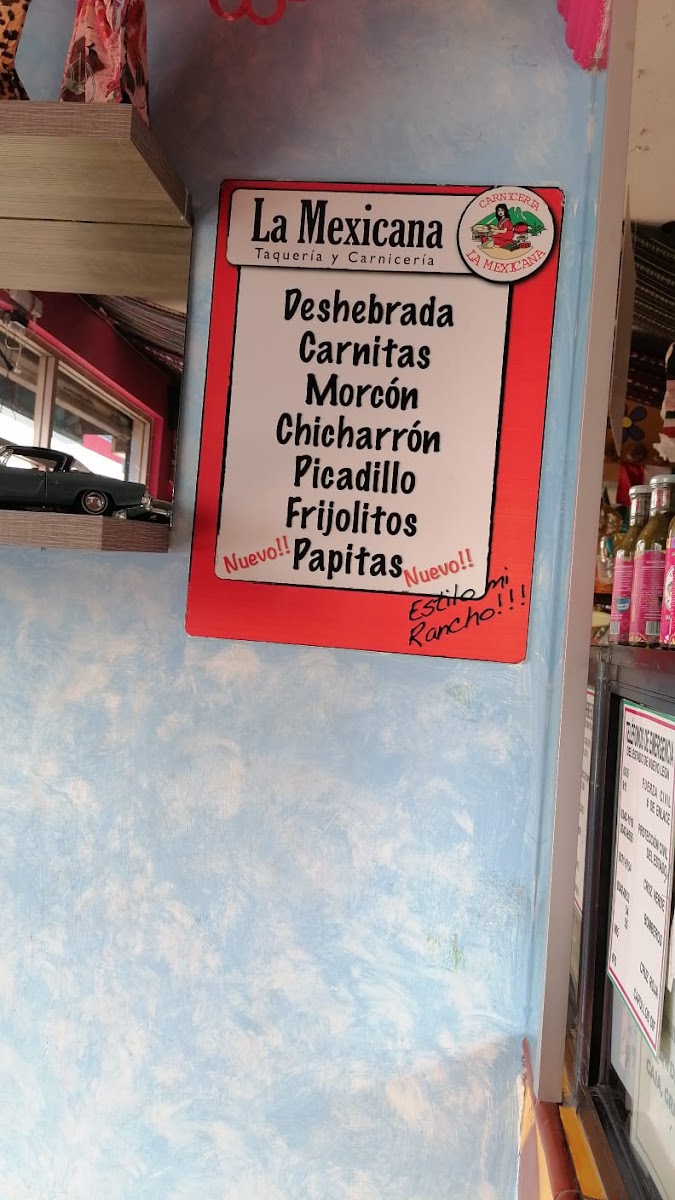 La Mexicana
Taquería y Carnicería
CARNICERIA
LA MEXICANA
Deshebrada
Carnitas
Morcón
Chicharrón
Picadillo
Frijolitos
Nuevo!! Papitas Nuevo!!
Estilo mi
Rancho!!!
TELEFONOS DE EMERGENCIA
DEL ESTADO DE NUEVO LEON
FUERZA CIVIL
# DE ENLACE
PROTECCION CIVIL
DEL ESTADO
CRUZ VERDE
BOMBEROS
CRUZ ROJA